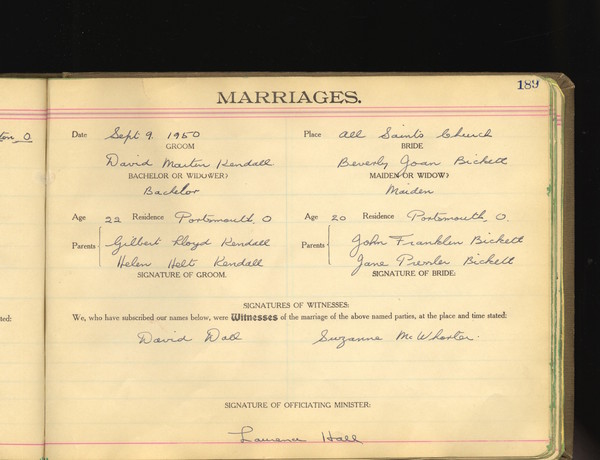 189
MARRIAGES.
ton, O.
Date Sept 9, 1950 Place All Saints Church
GROOM BRIDE
David Martin Kendall Beverly Joan Bickett
BACHELOR OR WIDOWER? MAIDEN OR WIDOW?
Bachelor Maiden
Age 22 Residence Portsmouth, O Age 20 Residence Portsmouth, O.
Parents Gilbert Lloyd Kendall Parents John Franklin Bickett
Helen Holt Kendall Jane Bickett
SIGNATURE OF GROOM. SIGNATURE OF BRIDE:
SIGNATURES OF WITNESSES:
ted: We, who have subscribed our names below, were Witnesses of the marriage of the above named parties, at the place and time stated:
David Dall Suzanne McWhorter.
SIGNATURE OF OFFICIATING MINISTER:
Laurence Hall